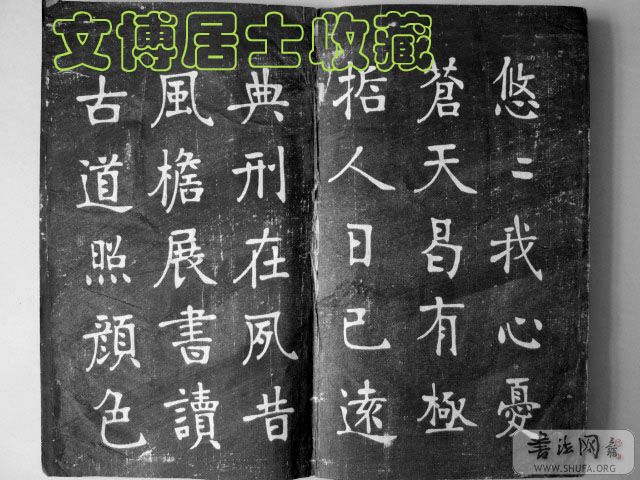 文博居士收藏
悠〻我心憂
蒼天曷有極
哲人日已遠
典刑在夙昔
風檐展書讀
古道照顔色
书法网
WWW.SHUFA.ORG